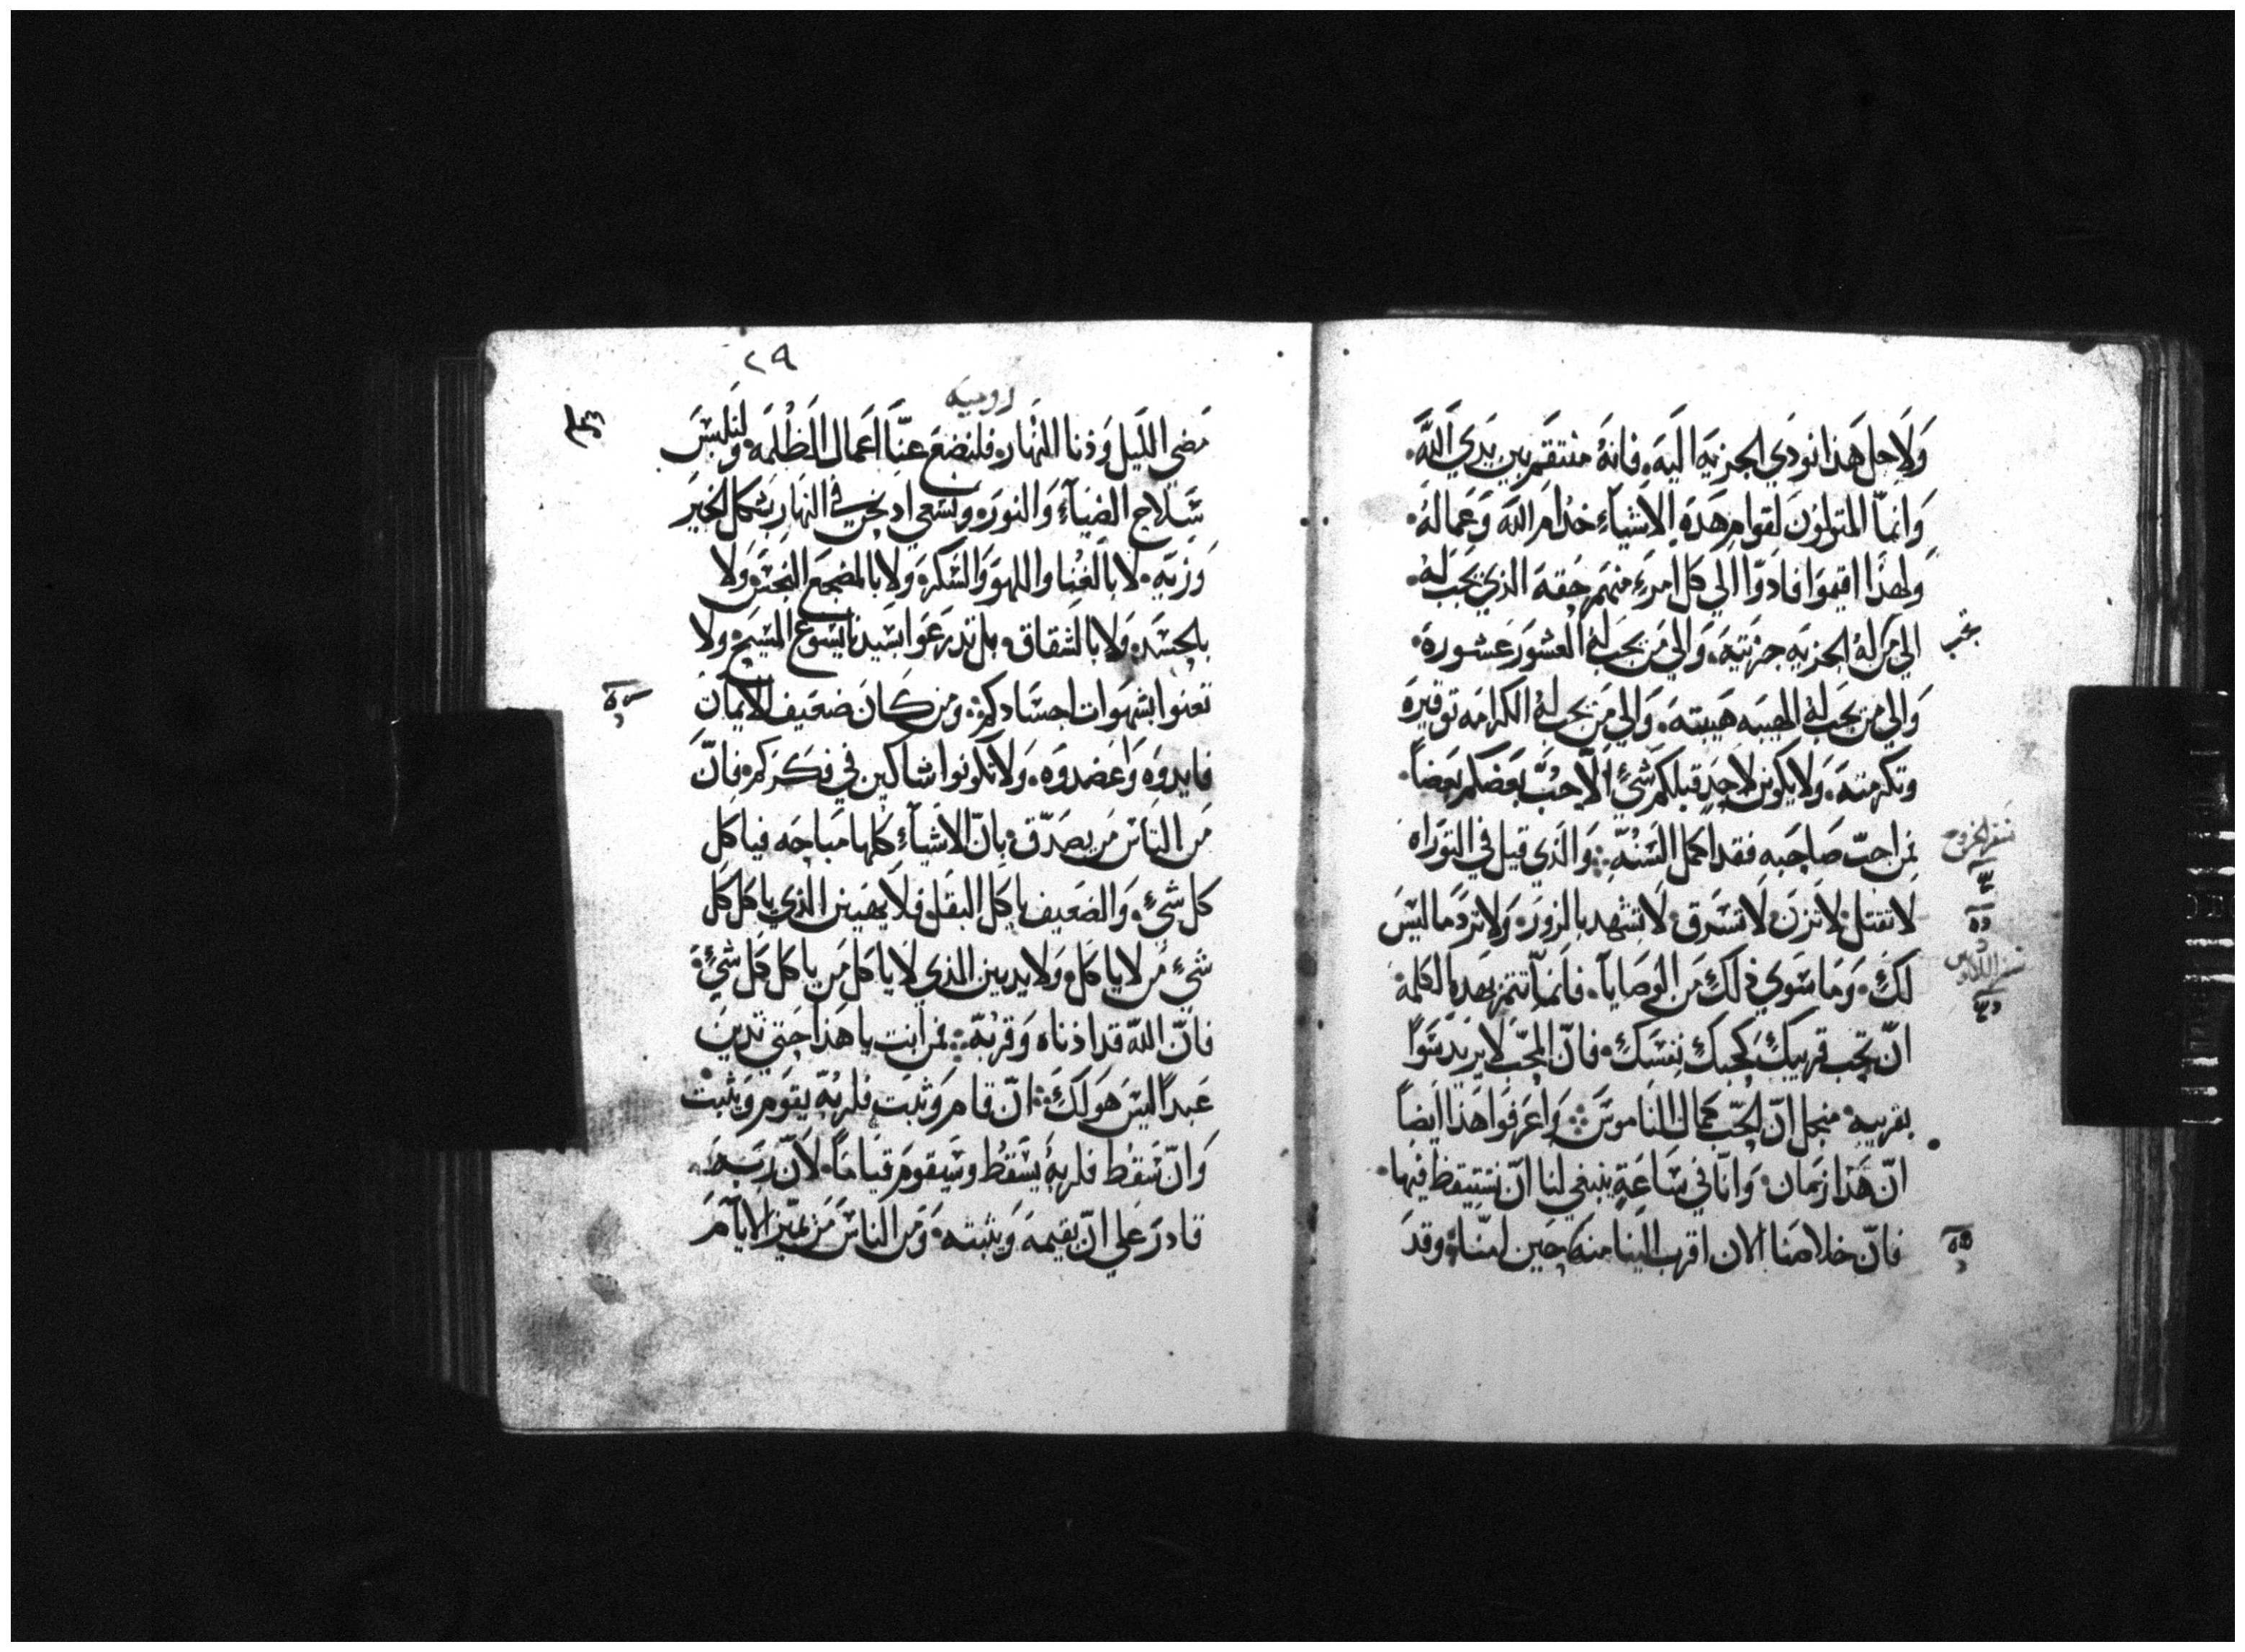 وَلاَجل هَذا نودَي الجزيَه اليَه. فانهُ منتقم بين يَدَي اللَّه.
وَانماّ المتولوَن لقوامِ هَذه الاَشيآءِ خدام اللَه وَعمالهُ.
وَلهذَا اقيموَا فادَوّا الي كل امرءٍ منهَم حَقهَ الذي يجَب لهُ.
الي مَن لهُ الجزيَه جزيَتهَ. وَالي مَن يجَب لهُ العشوَر عَشورهَ.
وَالي من يجَب لهُ الهيبَه هَيبتهَ. وَالي مَن يجَب لهُ الكرامَه توقيرهَ
وتكرمتهَ. وَلا يكوَن لاحَدٍ قبلكم شَيٍ الاّ حُبّ بعَضكم بَعضاً.
نجب
فمن احبّ صَاحبه فقد اكمل السُنّه. وَالذَي قيل في التوَراه
سَفر الخروج
لا تقتل لا تزن لاَ تسَرق لاَ تشهد بالزورَ. وَلا تردَ ما ليسَ
لكَ. وَمَا سَوي ذلكَ مَن الوَصايآ. فانماّ تتم بهَذه الكلمه
انّ تحَب قريبكَ كحبكَ نفسَك. فانّ المحَبّ لاَ يريَد سَوًا
بقريبه. منجل انّ الحَبّ كمال الناموسَ وَاعرفوَا هَذا ايَضاً
انّ هَذا زمَان. وَانّا في سَاعَةٍ ينبغي لنا انّ نستيقظ فيها.
فانّ خلاصَنا الان اقرب الينا منه حَين امنّا. وقدَ
٢٩
روميه
مَضي الليَل وَدنا النهَار. فلنضعَ عنّا اعَمال الظلمَه. وَلنلبسَ
سَلاح الضيآءِ وَالنورَ. ونسَعي اذ نحَن في النهَار بشكل الخيرَ
وَزيه. لا بالغنا واللهوَ وَالسَكر. وَلا بالمضجع النجسَ. وَلا
بالحسَد. وَلا بالشقاق. بل تدرعَوا بسَيدنا يسَوع المسَيح. ولا
تعنوا بشهوَات اجسَادكم. ومن كانَ ضعَيف الايمَان
فايدوَه وَاعضدوَه. وَلا تكونوا شاكين في فكرَكم. فانّ
مَن الناسَ مَن يصَدّق بانّ الاشيآءِ كلها مَباحَه فياكل
كل شَيٍ. وَالضعَيف ياكل البقل. فلا يهَينن الذي ياكل كل
شَيٍ مَن لا ياكل. وَلا يدينن الذي لاَ ياكل مَن ياكل كل شَيٍ.
فانّ اللّه قد ادناه وَقربّه. فمن انت يا هَذا حَتي تدينَ
عَبداً ليسَ هوَ لكَ. انّ قام وَثبت فلربّه يقوَم وَيثبت
وَانّ سَقط فلربهُ يسَقط وسَيقوَم قيامَاً. لانّ ربَه
قادرَ عَلي انّ يقيمهَ وَيثبته. وَمَن الناسَ مَن يميّز الايآم